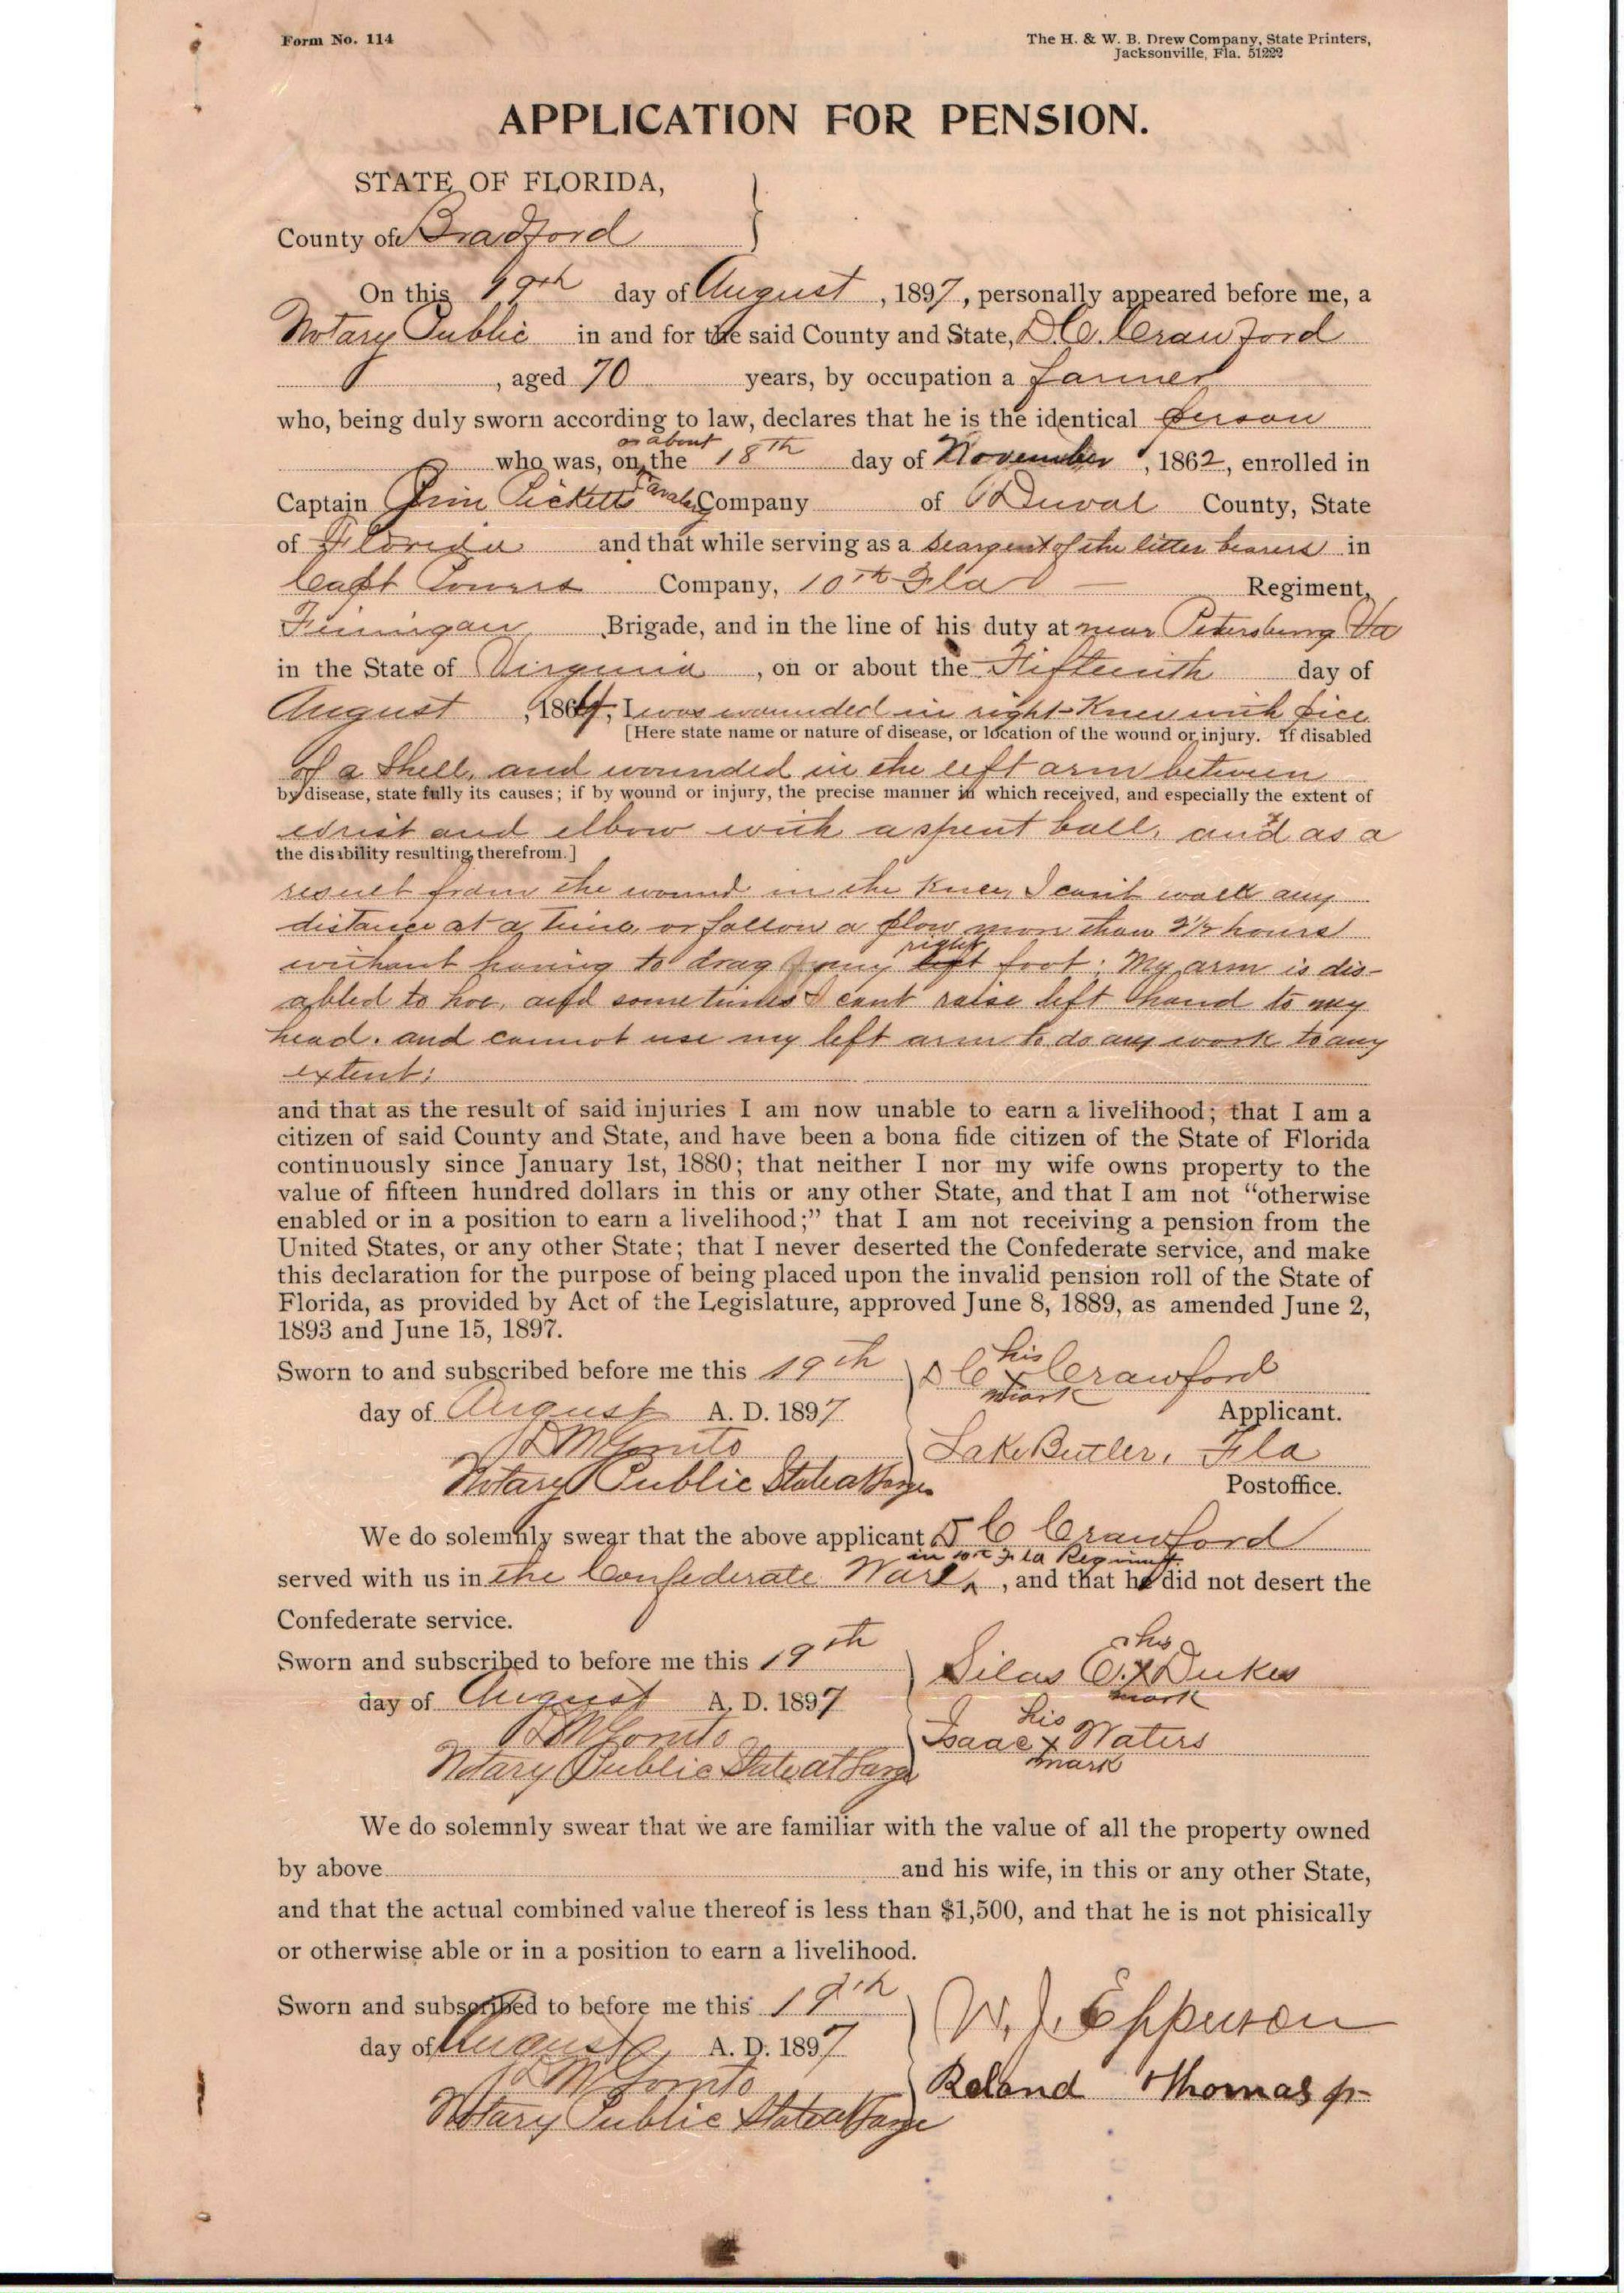 Form No. 114
The H. & W. B. Drew Company, State Printers,
Jacksonville, Fla. 51222
APPLICATION FOR PENSION.
STATE OF FLORIDA,
County of Bradford
On this 19th day of August, 1897, personally appeared before me, a
Notary Public in and for the said County and State, D.C. Crawford
, aged 70 years, by occupation a farmer
who, being duly sworn according to law, declares that he is the identical person
or about
who was, on the 18th day of November, 1862, enrolled in
Captain Jim Picketts Cavalry Company of Duval County, State
of Florida and that while serving as a seargent of the litter bearers in
Capt Powers Company, 10th Fla — Regiment,
Finnigan Brigade, and in the line of his duty at near Petersburg Va
in the State of Virginia, on or about the Fifteenth day of
August, 1864, I was wounded in right Knee with pice
[Here state name or nature of disease, or location of the wound or injury. If disabled
of a Shell, and wounded in the left arm between
by disease, state fully its causes; if by wound or injury, the precise manner in which received, and especially the extent of
wrist and elbow with a spent ball, and as a
the disability resulting therefrom.]
result from the wound in the Knee, I can't walk any
distance at a time, or follow a plow more than 2½ hours
right
without having to drag my left foot; My arm is dis-
abled to hoe, and sometimes I cant raise left hand to my
head. and cannot use my left arm to do any work to any
extent;
and that as the result of said injuries I am now unable to earn a livelihood; that I am a
citizen of said County and State, and have been a bona fide citizen of the State of Florida
continuously since January 1st, 1880; that neither I nor my wife owns property to the
value of fifteen hundred dollars in this or any other State, and that I am not "otherwise
enabled or in a position to earn a livelihood;" that I am not receiving a pension from the
United States, or any other State; that I never deserted the Confederate service, and make
this declaration for the purpose of being placed upon the invalid pension roll of the State of
Florida, as provided by Act of the Legislature, approved June 8, 1889, as amended June 2,
1893 and June 15, 1897.
Sworn to and subscribed before me this 19th
his
D C x Crawford
mark
day of August A. D. 1897
Applicant.
Lake Butler, Fla
Notary Public State at Large
Postoffice.
We do solemnly swear that the above applicant D C Crawford
in 10th Fla Regiment
served with us in the Confederate War, and that he did not desert the
Confederate service.
Sworn and subscribed to before me this 19th
his
Silas E. x Dukes
mark
day of August A. D. 1897
his
Isaac x Waters
mark
Notary Public State at Large
We do solemnly swear that we are familiar with the value of all the property owned
by above and his wife, in this or any other State,
and that the actual combined value thereof is less than $1,500, and that he is not phisically
or otherwise able or in a position to earn a livelihood.
Sworn and subscribed to before me this 19th
W. J. Epperson
day of August A. D. 1897
Roland Thomas jr
Notary Public State at Large